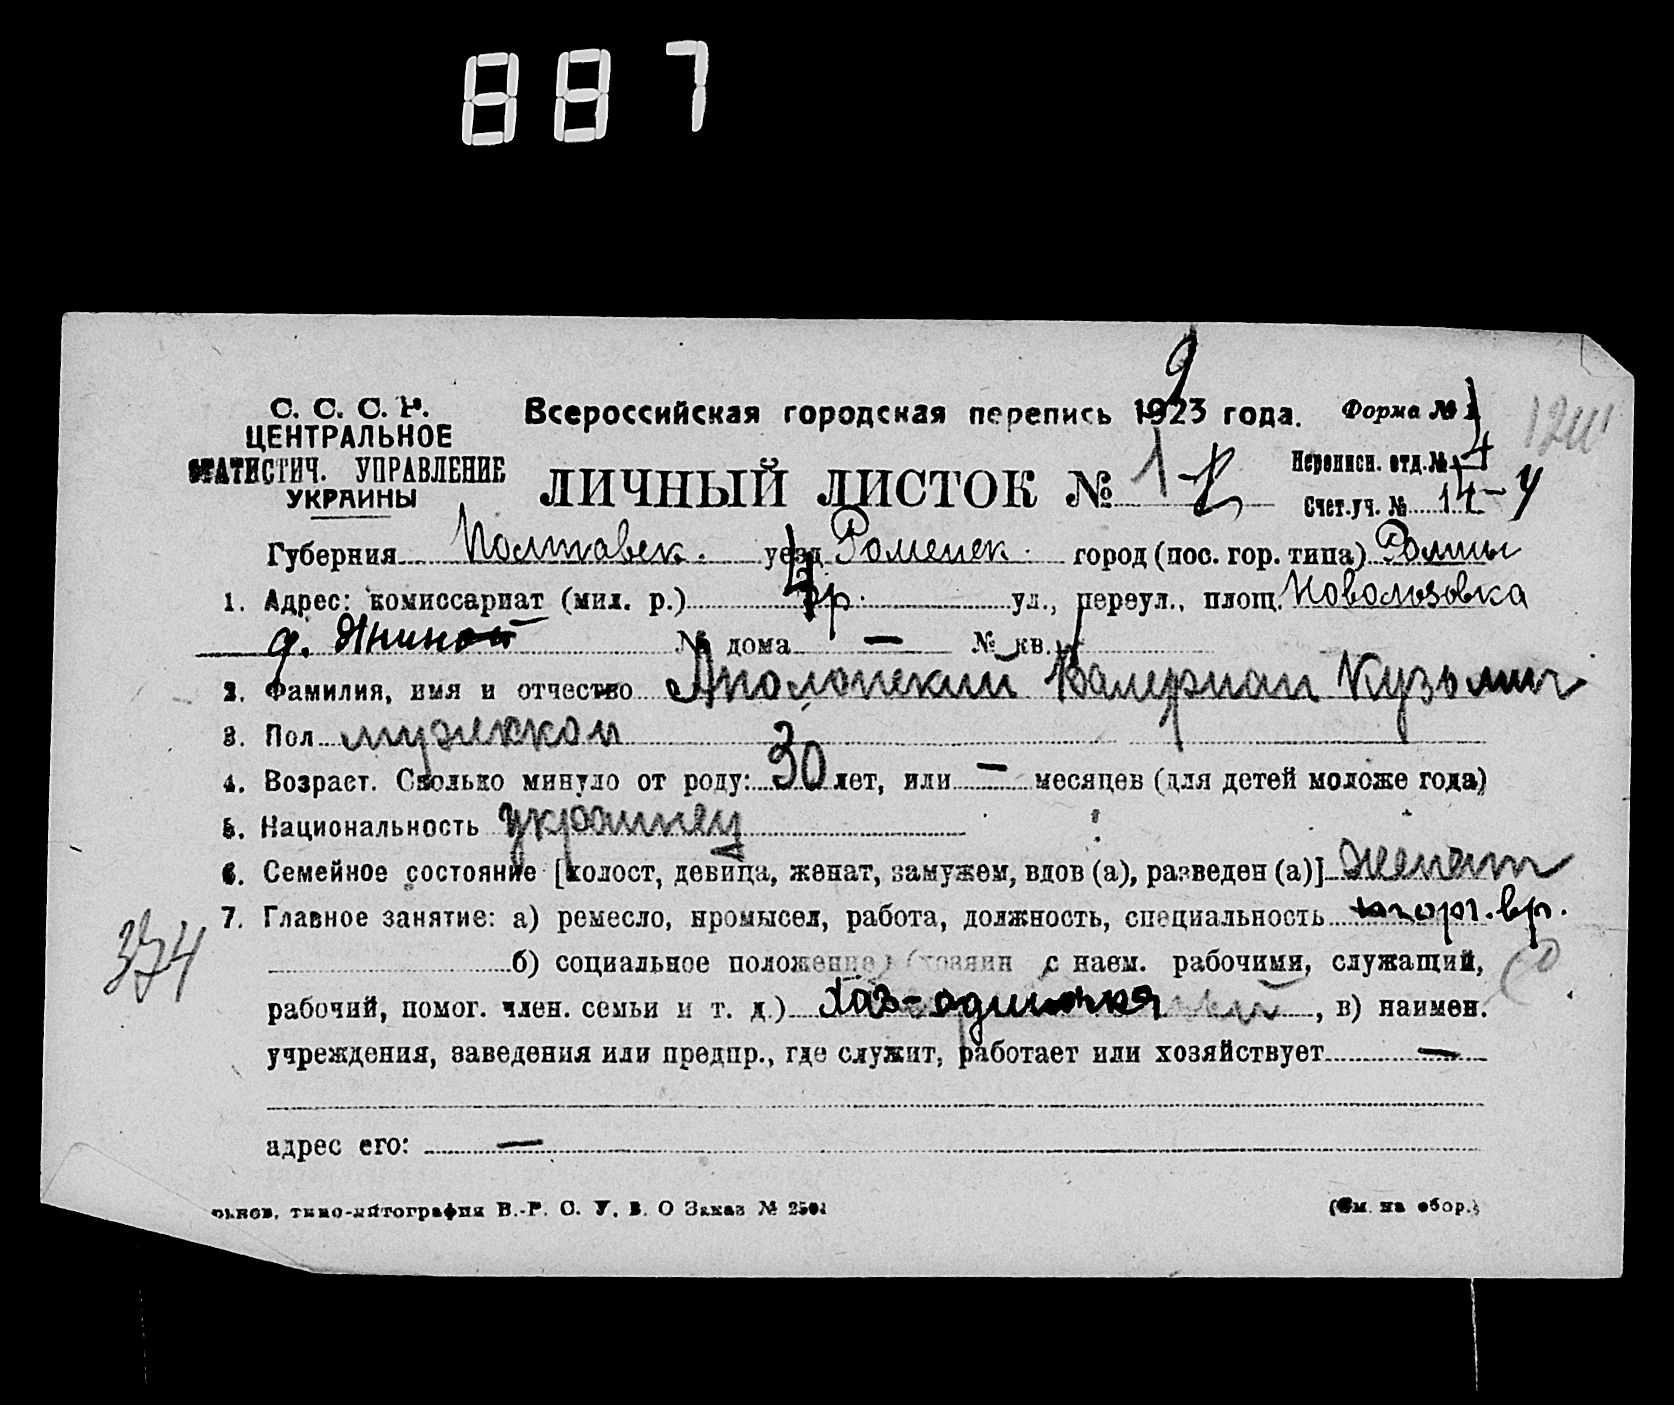 887
9
С. С. С. Р.
ЦЕНТРАЛЬНОЕ
СТАТИСТИЧ. УПРАВЛЕНИЕ
УКРАИНЫ
Всероссийская городская перепись 1923 года.
Форма № 1
ЛИЧНЫЙ ЛИСТОК № 1
Переписн. отд. №
Счет. уч. № 14
Губерния Полтавск. уезд Роменск. город (пос. гор. типа) Ромны
1. Адрес: комиссариат (мил. р.) 4 р. ул., переул., площ. Новолозовка
д. № дома — № кв.
2. Фамилия, имя и отчество Аполонский Валериан Кузьмич
3. Пол мужской
4. Возраст. Сколько минуло от роду: 30 лет, или — месяцев (для детей моложе года)
5. Национальность украинец
6. Семейное состояние [холост, девица, женат, замужем, вдов (а), разведен (а)] женат
7. Главное занятие: а) ремесло, промысел, работа, должность, специальность
374
б) социальное положение (хозяин с наем. рабочими, служащий,
рабочий, помог. член. семьи и т. д.) хоз-одиночка, в) наимен.
учреждения, заведения или предпр., где служит, работает или хозяйствует —
адрес его: —
типо-литография В.-Р. С. У. В. О Заказ №
(См. на обор.)